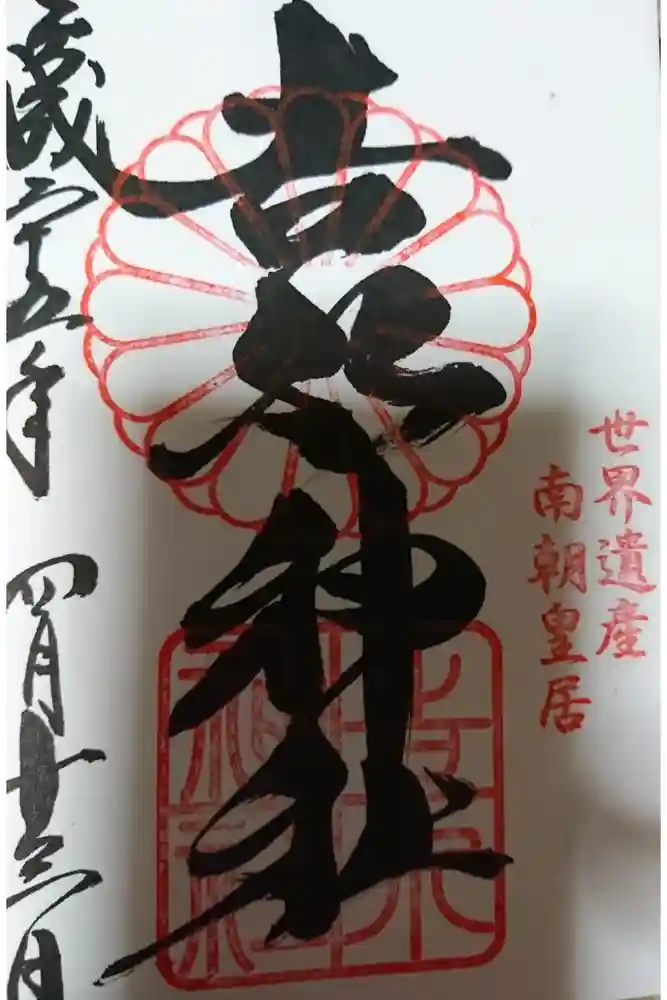 世界遺産
南朝皇居
吉水神社
吉水
神社
平成二十五年四月十三日